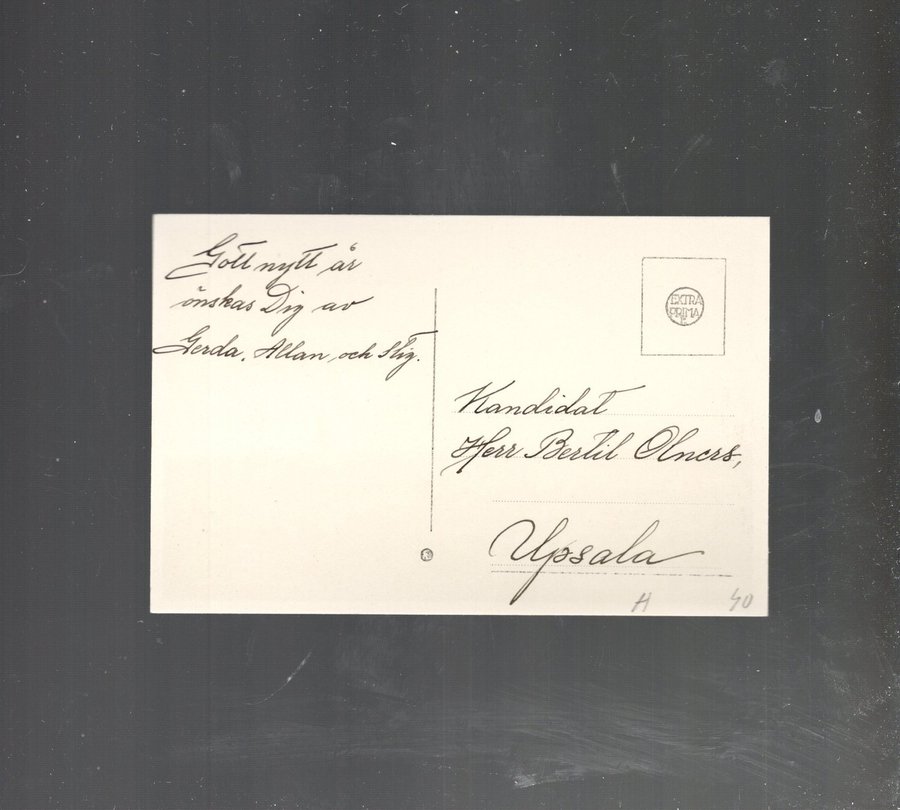 Gott nytt år
önskas Dig av
Gerda, Allan och Stig.
EXTRA
PRIMA
Kandidat
Herr Bertil Olners,
Upsala
H 40